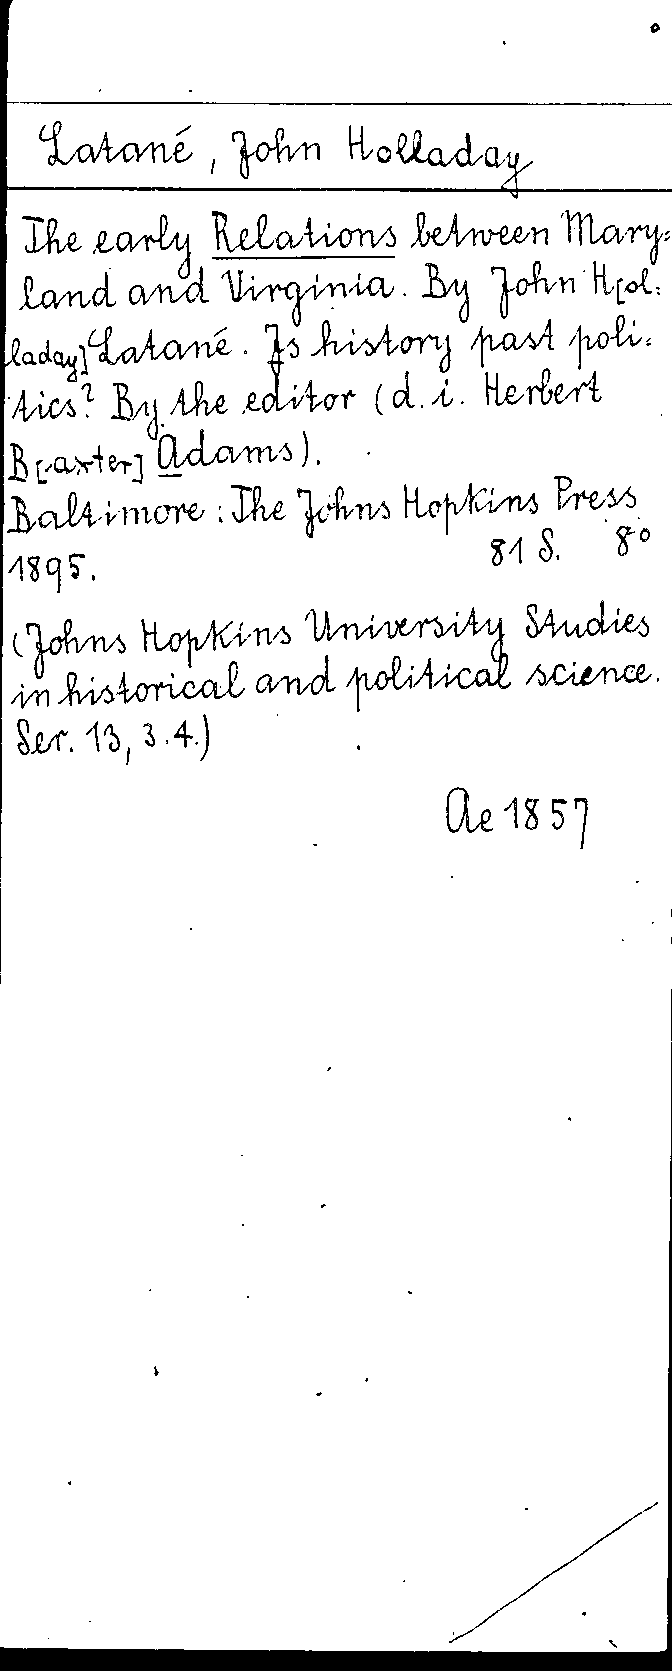 Latané, John Holladay
The early Relations between Mary=
land and Virginia. By John H[ol=
laday] Latané. Is history past poli=
tics? By the editor (d. i. Herbert
B[axter] Adams).
Baltimore: The Johns Hopkins Press
1895. 81 S. 8°
(Johns Hopkins University Studies
in historical and political science.
Ser. 13, 3.4.)
Ae 1857